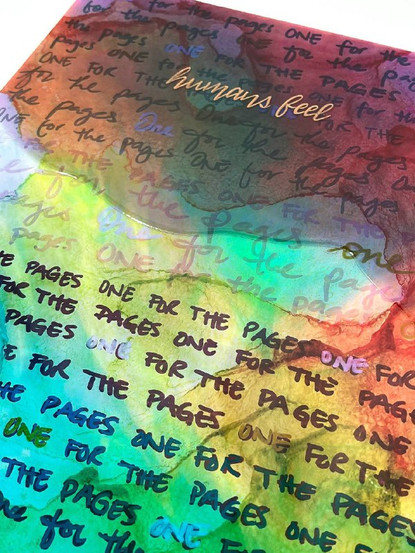 for the pages ONE for the
the pages ONE for the pages
for the pages ONE FOR THE PAGES
ONE FOR THE
humans feel
the pages One for the pages
for the pages ONE for the pages
FOR THE PAGES ONE FOR THE
pages One for the pages one
THE PAGES ONE FOR THE PAGES ONE FOR
FOR THE PAGES ONE FOR THE PAGES
PAGES ONE FOR THE PAGES ONE
FOR THE PAGES ONE FOR THE
THE PAGES ONE FOR THE PAGES
ONE FOR THE PAGES ONE
THE PAGES ONE
one for the